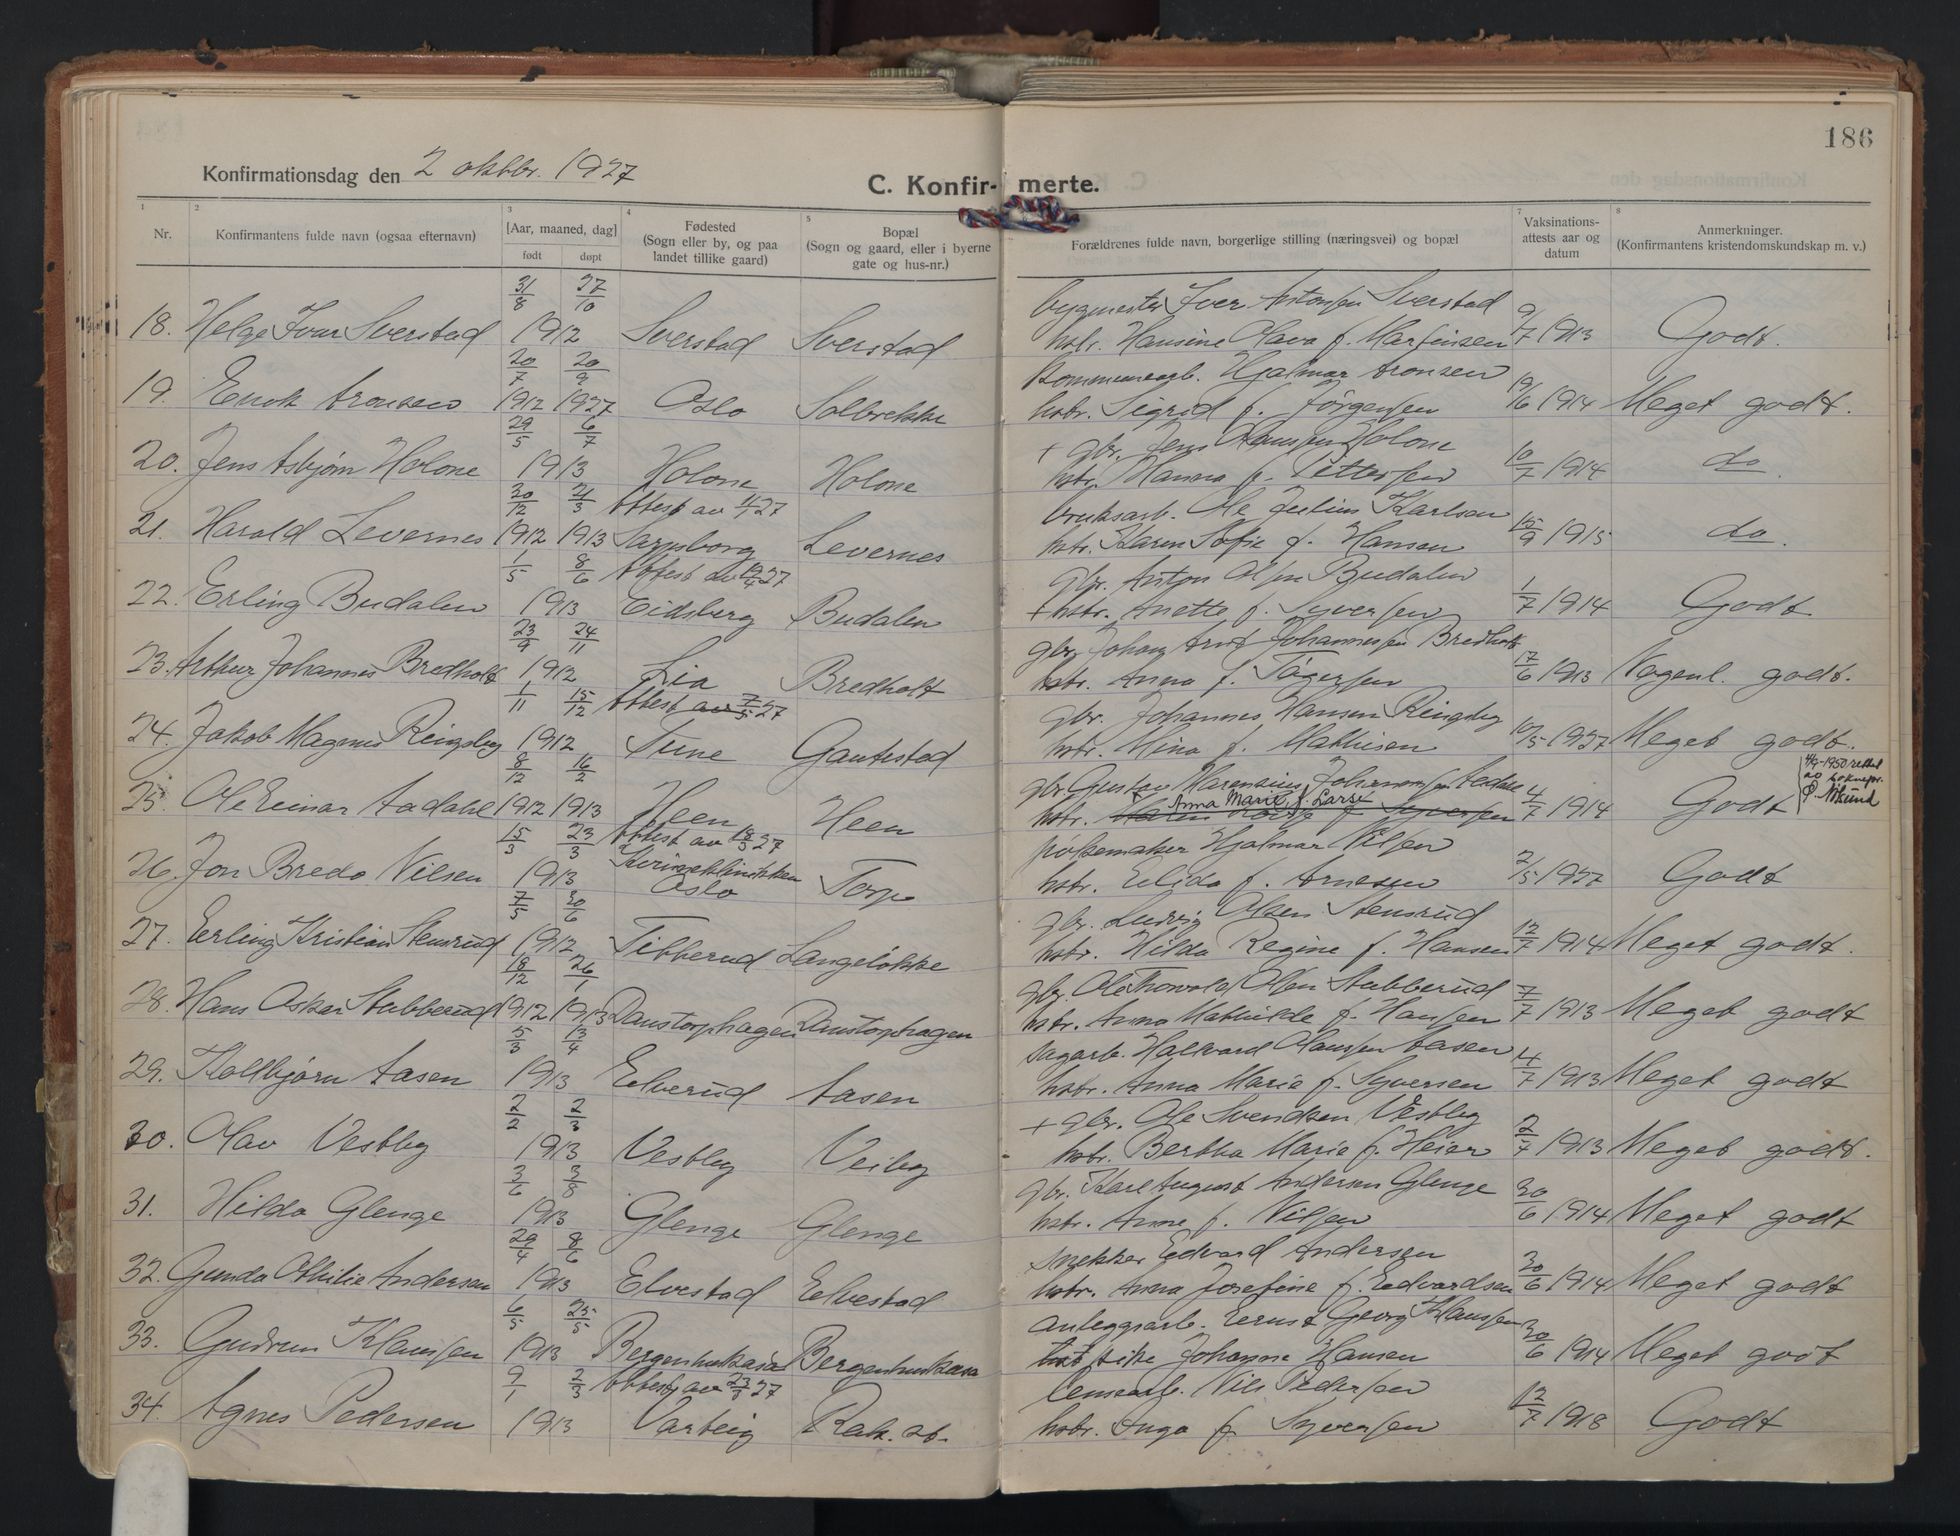 186
Konfirmationsdag den 2 oktbr. 1927
C. Konfir- merte.
1 2 3 4 5 7 8
Nr.
Konfirmantens fulde navn (ogsaa efternavn)
[Aar, maaned, dag]
født døpt
Fødested
(Sogn eller by, og paa
landet tillike gaard)
Bopæl
(Sogn og gaard, eller i byerne
gate og hus-nr.)
Forældrenes fulde navn, borgerlige stilling (næringsvei) og bopæl
Vaksinations-
attests aar og
datum
Anmerkninger.
(Konfirmantens kristendomskundskap m. v.)
31/8 27/10 bygmester Iver Antonsen Sverstad
18. Helge Ivar Sverstad 1912 Sverstad Sverstad hstr. Hansine Olava f. Martinsen 9/7 1913 Godt.
20/7 20/9 Kommunearb. Hjalmar Aronsen
19. Enok Aronsen 1912 1927 Oslo Solbrekke hstr. Sigrid f. Jørgensen 19/6 1914 Meget godt.
29/5 6/7 + gbr. Jens Hansen Holone
20. Jens Asbjørn Holone 1913 Holone Holone hstr. Hanna f. Pettersen 10/7 1914 do.
30/12 21/3 Attest av 11/1 27 bruksarb. Ole Julius Karlsen
21. Harald Levernes 1912 1913 Sarpsborg Levernes hstr. Karen Sofie f. Hansen 15/9 1915 do.
1/5 8/6 Attest av 19/4 27 gbr. Anton Olsen Budalen
22. Erling Budalen 1913 Eidsberg Budalen + hstr. Anette f. Syversen 1/7 1914 Godt
23/9 24/11 gbr. Johan Arnt Johannessen Bredholt
23. Arthur Johannes Bredholt 1912 Lia Bredholt hstr. Anna f. Tögersen 17/6 1913 Nogenl. godt.
1/11 15/12 Attest av 7/5 27 gbr. Johannes Hansen Ringsby
24. Jakob Magnus Ringsby 1912 Tune Gautestad hstr. Mina f. Mathisen 10/5 1927 Meget godt.
8/12 16/2 gbr. Gustav Marensius Johannessen Aadahl
25. Ole Einar Aadahl 1912 1913 Heen Heen hstr. Anna Marie f. Larse 4/7 1914 Godt
15/3 23/3 Attest av 18/3 27 pølsemaker Hjalmar Nilsen
26. Jon Bredo Nilsen 1913 Oslo Torp hstr. Elida f. Arnesen 2/5 1927 Godt
7/5 30/6 gbr. Ludvig Olsen Stensrud
27. Erling Kristian Stensrud 1912 Tibberud Langeløkke hstr. Hilda Regine f. Hansen 12/7 1914 Meget godt.
18/12 26/1 gbr. Ole Thorvald Olsen Stubberud
28. Hans Oskar Stubberud 1912 1913 Ramstorphagen Ramstorphagen hstr. Anna Mathilde f. Hansen 7/7 1913 Meget godt
5/3 13/4 sagarb. Halvard Hansen Aasen
29. Kolbjørn Aasen 1913 Elverud Aasen hstr. Anna Marie f. Syversen 4/7 1913 Meget godt
2/2 2/3 + gbr. Ole Svendsen Vestby
30. Olav Vestby 1913 Vestby Veiby hstr. Bertha Marie f. Heier 2/7 1913 Meget godt.
3/6 3/8 gbr. Karl August Andersen Glenge
31. Hilda Glenge 1913 Glenge Glenge hstr. Anne f. Nilsen 30/6 1914 Meget godt
29/4 8/6 snekker Edvard Andersen
32. Gunda Othilie Andersen 1913 Elvestad Elvestad hstr. Anna Josefine f. Edvardsen 30/6 1914 Meget godt
6/5 25/5 anleggsarb. Ernst Georg Klausen
33. Gudrun Klausen 1913 Bergenhuskasa Bergenhuskasa Johanne Hansen 30/6 1914 Meget godt
9/1 2/3 Attest av 23/3 27 Nils Pedersen
34. Agnes Pedersen 1913 Varteig Rak. st. hstr. Inga f. Syversen 12/7 1918 Godt